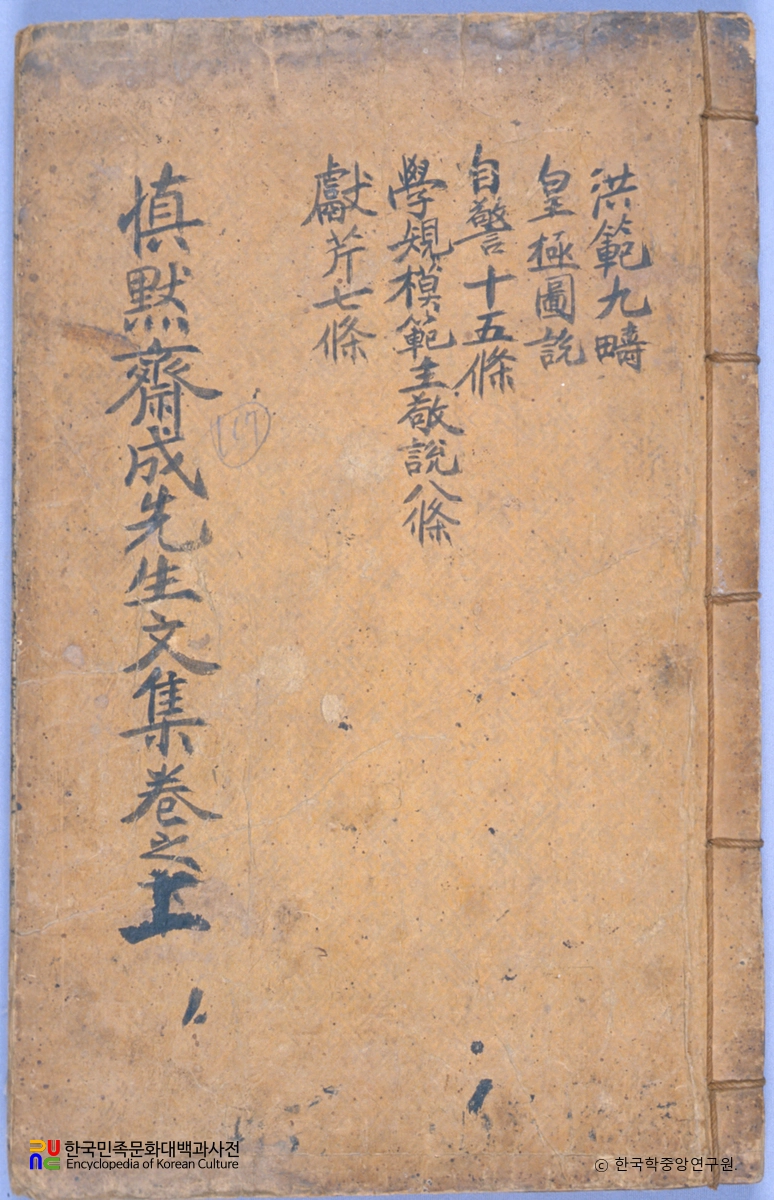 洪範九疇
皇極圖說
自警十五條
學規模範主敬說八條
獻芹七條
愼默齋成先生文集卷之上
117
한국민족문화대백과사전
Encyclopedia of Korean Culture
© 한국학중앙연구원